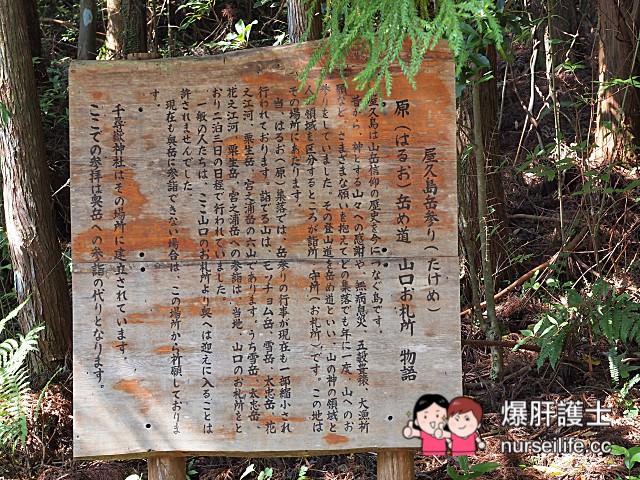 屋久島岳参り(たけめ)
原(はるお)岳め道 山口お札所 物語
屋久島は山岳信仰の歴史を今につなぐ島です。
昔から、神とする山々への感謝や、無病息災、五穀豊穣、大漁祈
願など、さまざまな願いを抱えてどの集落でも年に一度、山へのお
参りをしていました。その登山道を岳め道といい、山の神の領域と
人の領域を区分するところが詣所、守所(お札所)です。この地は
その場所にあたります。
当、はるお(原)集落では、岳参りの行事が現在も一部縮小され
行われております。詣でる山は、モッチョム岳、雪岳、太忠岳、花
之江河、粟生岳、宮之浦岳の六山であります。うち雪岳、太忠岳、
花之江河、粟生岳、宮之浦岳への参詣は、当地、山口のお札所をと
おり二泊三日の日程で行われていました。
一般の人たちは、ここ山口のお札所より奥へは迎えに入ることは
許されませんでした。
現在も奥岳に参詣できない場合は、この場所から祈願しておりま
す。
千尋嶽神社はその場所に建立されています。
ここでの参拝は奥岳への参詣の代りとなります。
爆肝護士
nurseilife.cc